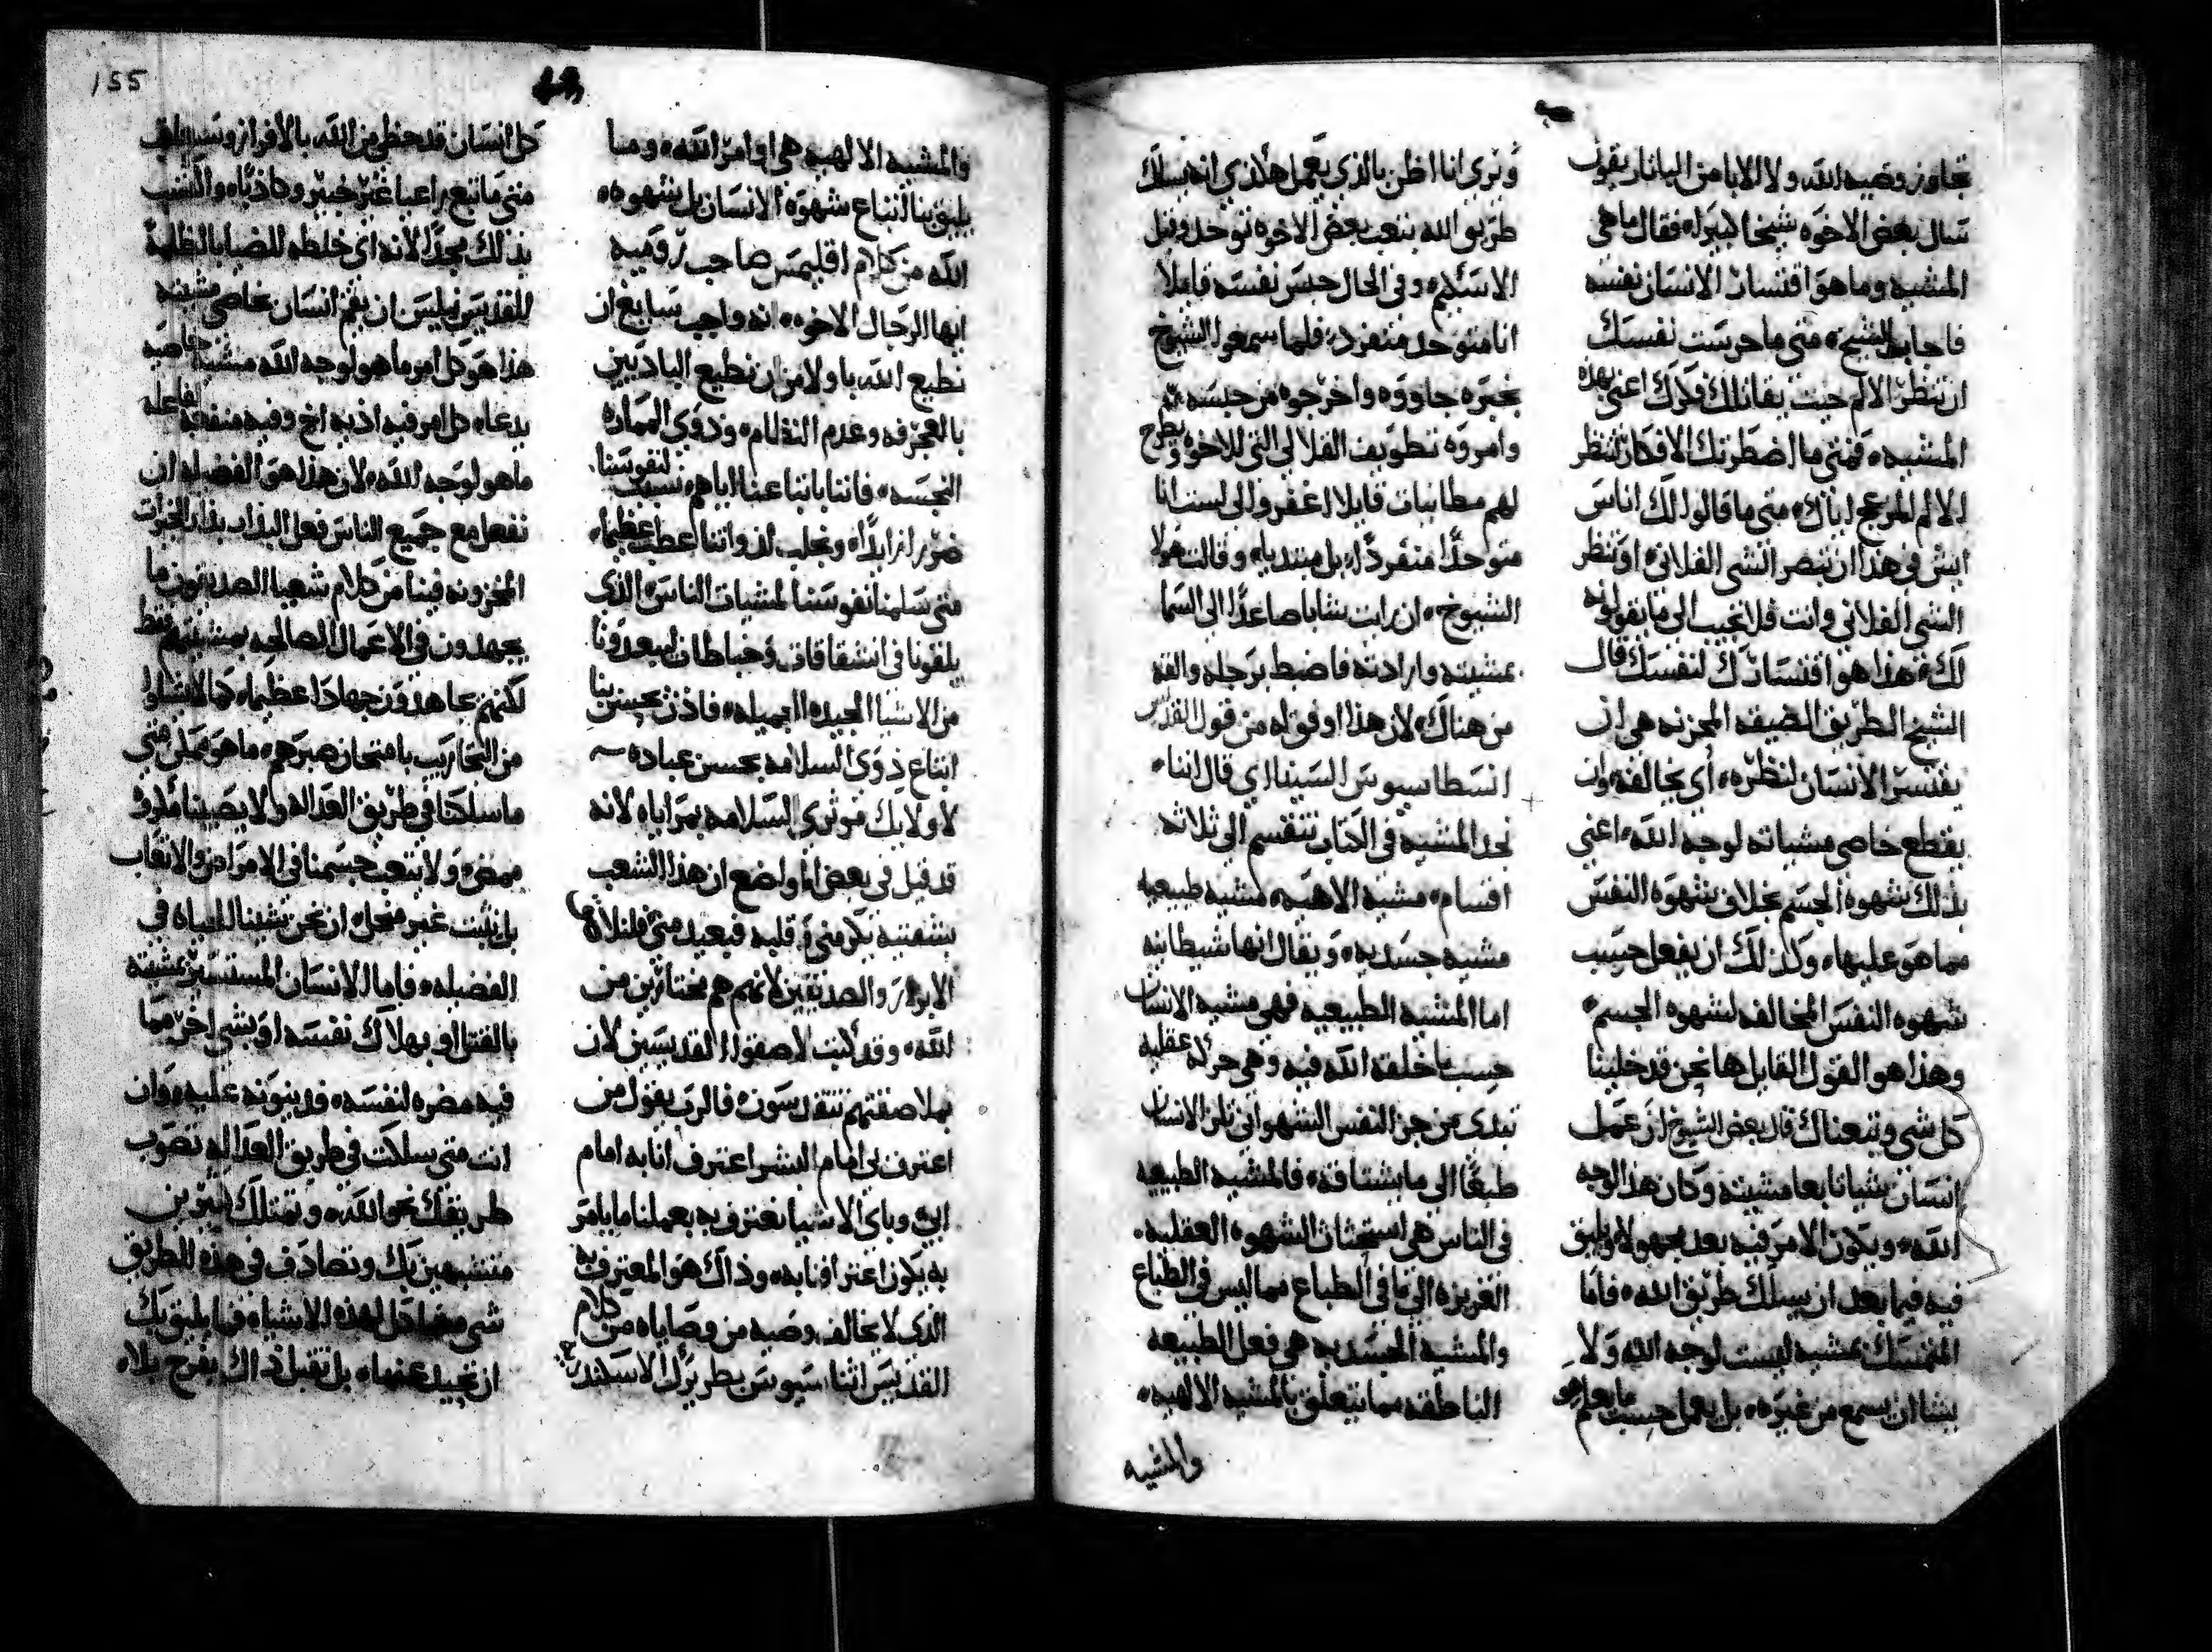 تجاوز وصيه الله ولا الابا من اليانار يقول
سال بعض الاخوه شيخا كبيرا فقال ما هى
المشيه وما هو اقتسار الانسان نفسه
فاجابه الشيخ متى ما حرست نفسك
ان تنظر الالم حيث يقاتلك فكرك اعنى بهذه
المشيه فمتى ما اضطرتك الافكار تنظر
الالم المزعج اياك متى ما قالوا لك اناس
ايش فى هذا ان تبصر الشى الفلانى او تنظر
الشى الفلانى وانت فلا تجيب الى ما يقولونه
لك فهذا هو اقتسارك لنفسك قال
الشيخ الطريق الضيقه المحزنه هى ان
يقتسر الانسان لنظره اى يخالفه وان
يقطع خاصى مشياته لوجه الله اعنى
بذلك شهوة الجسم بخلاف شهوه النفس
مما هو عليها وكذلك ان يفعل حسب
شهوه النفس المخالفه لشهوه الجسم
وهذا هو القول القايل ها نحن قد خلينا
كل شى وتبعناك قال بعض الشيوخ ان عمل
انسان شيا تابعا مشيته وكان هذا لوجه
الله ويكون الامر فيه بعد مجهولا ويليق
فيه فيما بعد ان يسلك طريق الله فاما
المتمسك بمشيه ليست لوجه الله ولا
يشا ان يسمع من غيره بل يعمل حسب ما يعلم هو
ونرى انا اظن بالذي يعمل هكذي انه يسلك
طريق الله بتعب بعض الاخوه توحد وقبل
الاسكيم وفى الحال حبس نفسه قايلا
انا متوحد منفرد فلما سمعوا الشيوخ
بخبره جاووه واخرجوه من حبسه ثم
وامروه بتطويف القلالى التى للاخوه ويطرح
لهم مطانيات قايلا اغفروا لى لست انا
متوحدا منفردا بل مبتديا وقالت هولا
الشيوخ ان رايت شابا صاعدا الى السما
بمشيته وارادته فاضبط برجله والقه
من هناك لان هذا اوفق له من قول القديس
انسطاسيوس السيناي قال اننا
نجد المشيه فى الكتاب تنقسم الى ثلاثه
اقسام مشيه الاهيه مشيه طبيعيه
مشيه جسديه ويقال انها شيطانيه
اما المشيه الطبيعيه فهى مشيه الانسان
حسب ما خلقه الله فيه وهى حركه عقليه
تبدى من جز النفس الشهوانى تلز الانسان
طبعا الى ما يشتاقه فالمشيه الطبيعيه
فى الناس هى استحثاث الشهوه العقليه
الغريزه الى ما فى الطباع مما ليس فى الطباع
والمشيه الجسديه هى فعل الطبيعه
الناطقه مما يتعلق بالمشيه الالهيه
والمشيه
155
والمشيه الالهيه هى اوامر الله وما
يليق بنا اتباع شهوة الانسان بل شهوه
الله من كلام اقليمس صاحب روميه
ايها الرجال الاخوه انه واجب سايغ ان
نطيع الله باولا من ان نطيع الباديين
بالعجرفه وعدم النظام وذوى المماراه
النجسه فاننا باتباعنا اياهم نسبب لنفوسنا
ضررا زايدا ونجلب لذواتنا عطبا عظيما
متى سلمنا نفوسنا لمشيات الناس الذى
يلقونا فى انشقاقات وخباطات ليبعدونا
من الاشيا الجيده الجميله فاذن يحسن بنا
اتباع ذوى السلامه بحسن عباده
لا ولايك موثري السلامه بمراياه لانه
قد قيل فى بعض المواضع ان هذا الشعب
بشفتيه يكرمنى وقلبه فبعيد منى فلنلاق
الابرار والصديقين لانهم هم مختارين من
الله وقد كتب لاصقوا القديسين لان
بملاصقتهم تتقدسون فالرب يقول من
اعترف بى امام البشر اعترف انا به امام
ابى وباى الاشيا نعترف به بعملنا ما يامر
به يكون اعترافنا به وذاك هو المعترف به
الذى لا يخالف وصيه من وصاياه من كلام
القديس اثناسيوس بطريرك الاسكندريه
كل انسان قد حظى من الله بالافراز
متى ما تبع راعيا غير خبير وكاذبا
بذلك مجدا لانه اى خلطه للضيا بالظلمه
للقديس نيلس ان يتم انسان خاصى مشيته
هذا هو كل امر ما هو لوجه الله مشيه خاصيه
يدعا كل امر فيه اذيه اخ وفيه منفعه لفاعله
ما هو لوجه الله لان هذا هو الفضله ان
نفعل مع جميع الناس
المخزونه فينا من كلام شعيا الصديقون ما
يجهدون فى الاعمال الصالحه بمشيتهم فقط
لكنهم يجاهدون جهادا عظيما
من التجاريب بامتحان صبرهم ما هو متى
ما سلكنا فى طريق العداله ولا يصيبنا
ممض ولا يتعب جسمنا فى الامراض والاتعاب
بل يثبت غير منحل ان نحن
الفضله فاما الانسان المستسير بمشيته
بالقتل او بهلاك نفسه او بشى اخر مما
فيه مضره لنفسه عليه وان
انت متى سلكت فى طريق العداله تصوب
طريقك نحو الله وتمتلك كثيرين
متشبهين بك وتصادف فى هذه الطريق
شى مضادا لهذه الاشياء فما يليق بك
ان تحيد عنها بل تقبل ذاك بفرح بلا